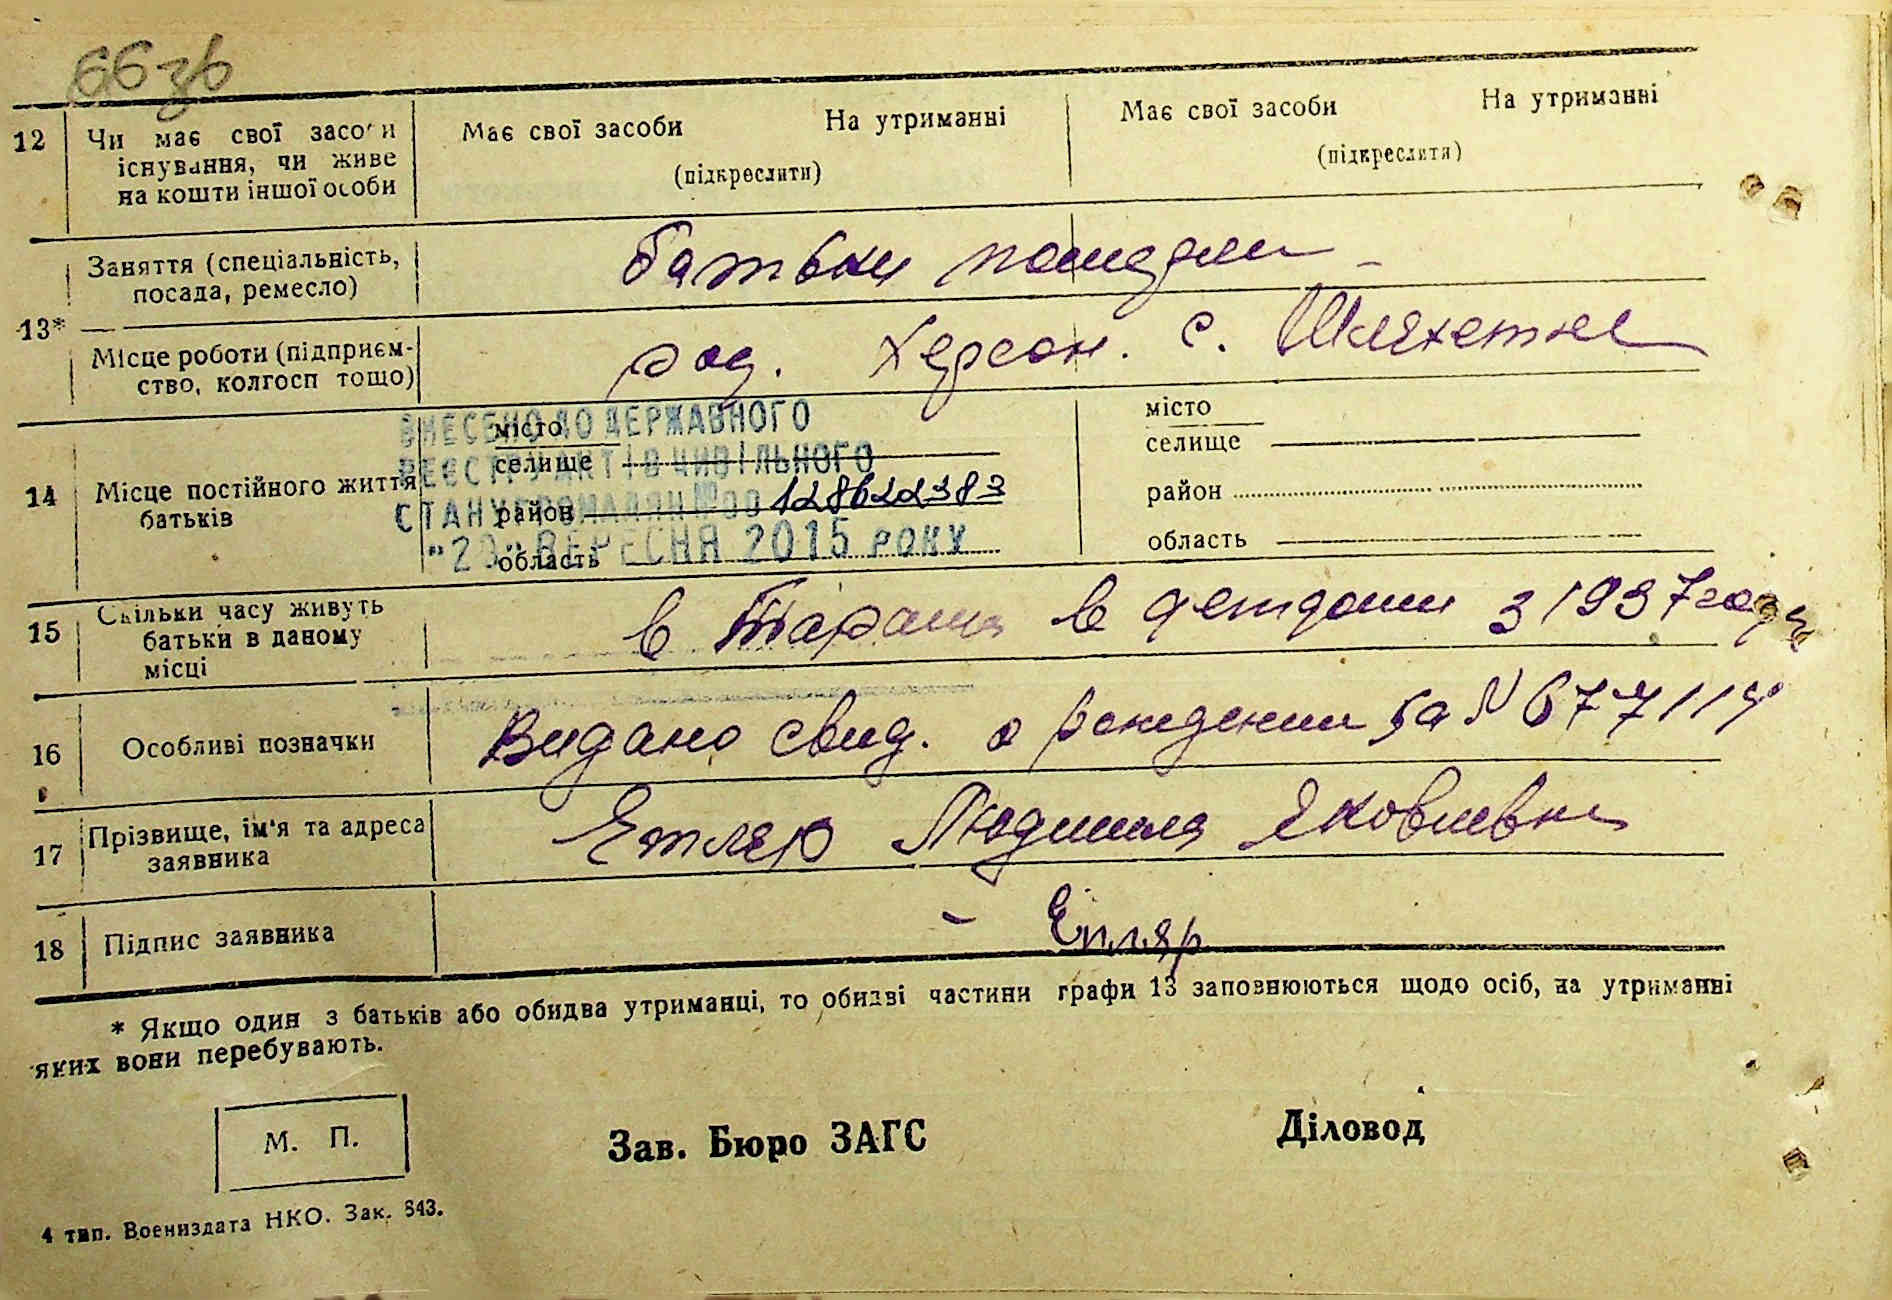 66 зв
12 Чи має свої засоби Має свої засоби На утриманні Має свої засоби На утриманні
існування, чи живе (підкреслити) (підкреслити)
на кошти іншої особи
13* Заняття (спеціальність, батьки померли
посада, ремесло)
Місце роботи (підприєм- род. Херсон. с. Шляхетне
ство, колгосп тощо)
ВНЕСЕНО ДО ДЕРЖАВНОГО
РЕЄСТРУ АКТІВ ЦИВІЛЬНОГО
СТАНУ ГРОМАДЯН № 00 128622383
"20" ВЕРЕСНЯ 2015 РОКУ
14 Місце постійного життя
батьків
місто місто
селище селище
район район
область область
15 Скільки часу живуть в Тараще в детдоми з 1937 году
батьки в даному
місці
16 Особливі позначки Видано свид. о рождении за N 677114
17 Прізвище, ім'я та адреса Етляр Людмила Яковлевна
заявника
18 Підпис заявника - Етляр
* Якщо один з батьків або обидва утриманці, то обидві частини графи 13 заповнюються щодо осіб, на утриманні
яких вони перебувають.
М. П.
Зав. Бюро ЗАГС Діловод
4 тип. Воениздата НКО. Зак. 643.